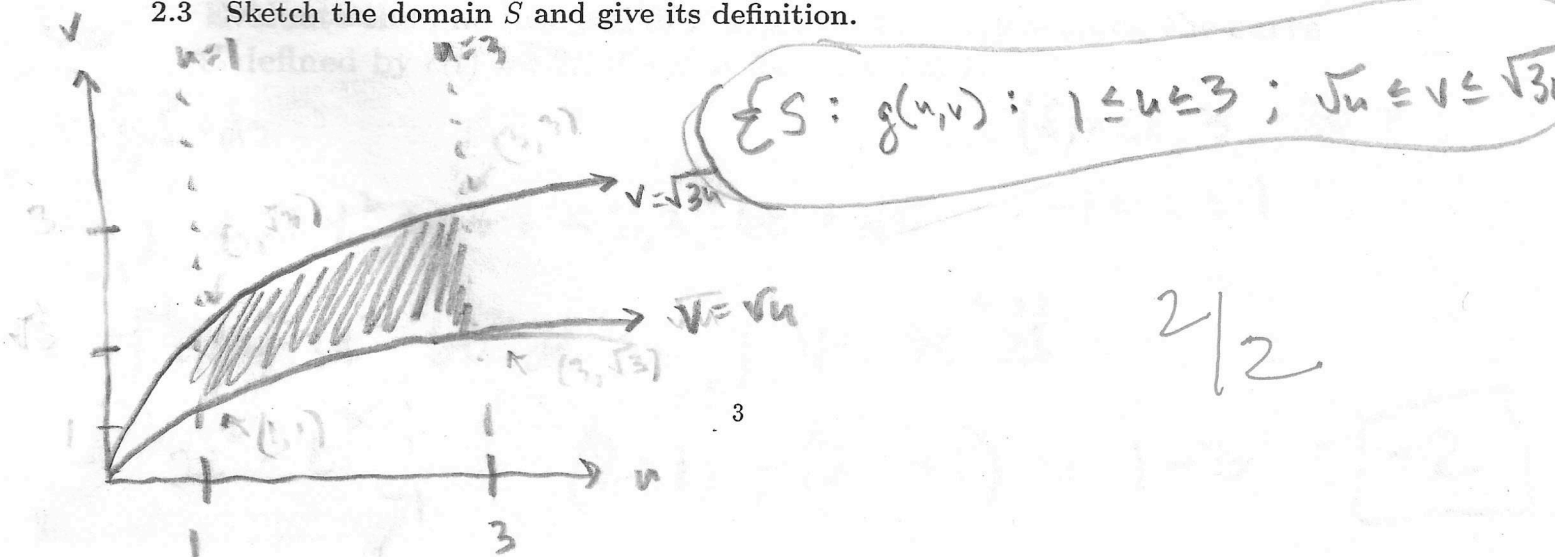 2.3 Sketch the domain S and give its definition.
v
u=1
u=3
{S : g(u,v) : 1 ≤ u ≤ 3 ; √u ≤ v ≤ √3u
(3,3)
v=√3u
3
(1,√3)
v=√u
√3
(3,√3)
2/2
3
1
(1,1)
u
1
3